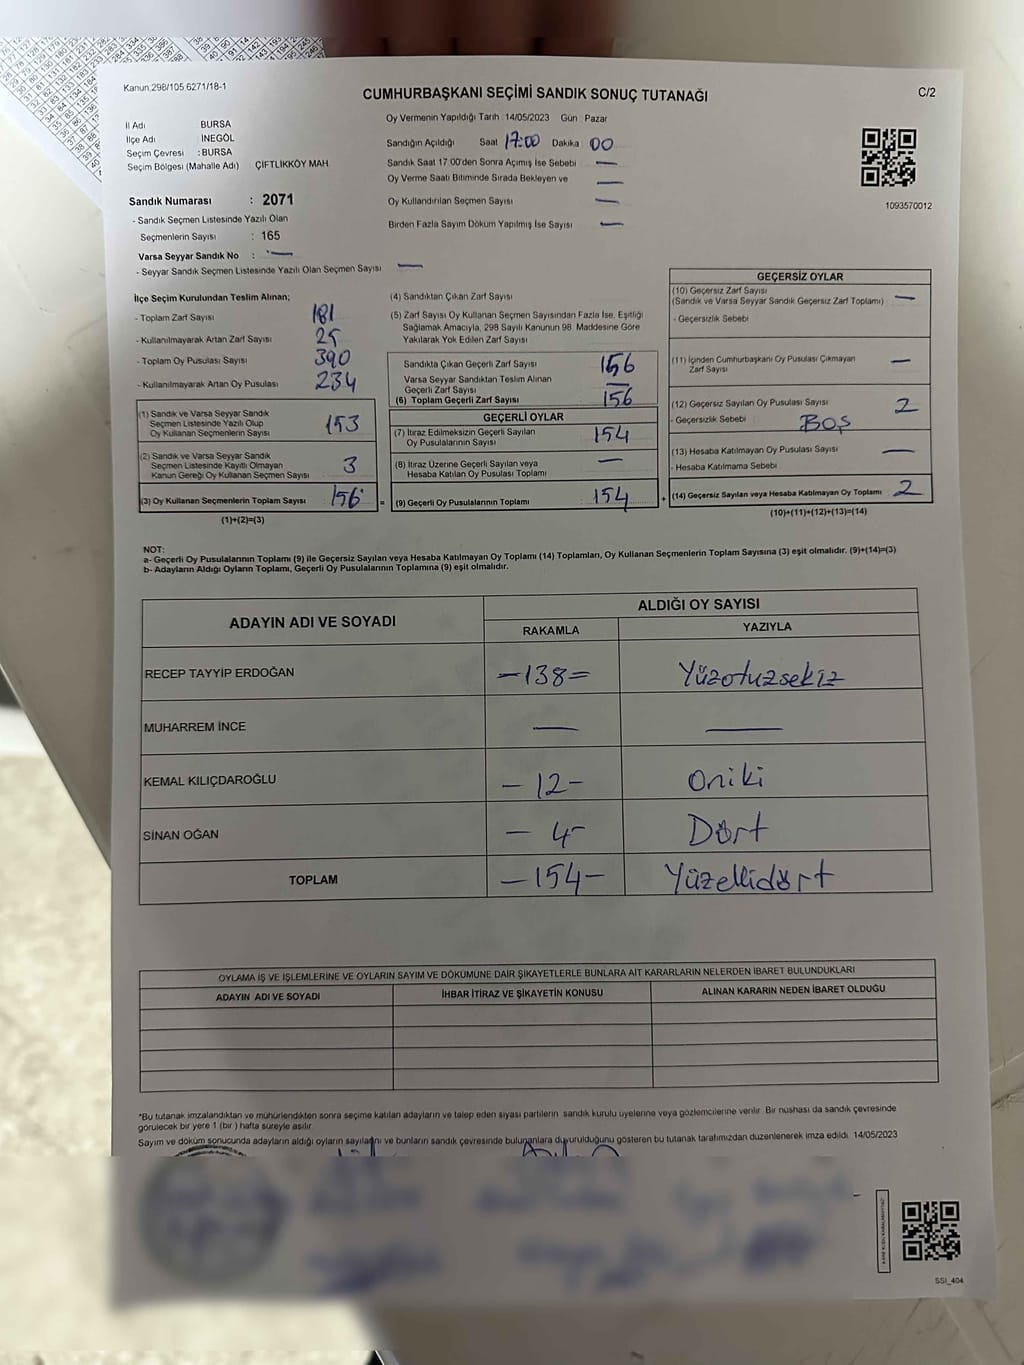 Kanun,298/105,6271/18-1
CUMHURBAŞKANI SEÇİMİ SANDIK SONUÇ TUTANAĞI
C/2
İl Adı BURSA
İlçe Adı İNEGÖL
Seçim Çevresi : BURSA
Seçim Bölgesi (Mahalle Adı) ÇİFTLİKKÖY MAH.
Sandık Numarası : 2071
- Sandık Seçmen Listesinde Yazılı Olan
Seçmenlerin Sayısı : 165
Varsa Seyyar Sandık No : —
- Seyyar Sandık Seçmen Listesinde Yazılı Olan Seçmen Sayısı —
Oy Vermenin Yapıldığı Tarih : 14/05/2023 Gün Pazar
Sandığın Açıldığı Saat 17:00 Dakika 00
Sandık Saat 17.00'den Sonra Açımış İse Sebebi —
Oy Verme Saati Bitiminde Sırada Bekleyen ve —
Oy Kullandırılan Seçmen Sayısı —
Birden Fazla Sayım Döküm Yapılmış İse Sayısı —
1093570012
İlçe Seçim Kurulundan Teslim Alınan;
- Toplam Zarf Sayısı 181
- Kullanılmayarak Artan Zarf Sayısı 25
- Toplam Oy Pusulası Sayısı 390
- Kullanılmayarak Artan Oy Pusulası 234
(1) Sandık ve Varsa Seyyar Sandık
Seçmen Listesinde Yazılı Olup
Oy Kullanan Seçmenlerin Sayısı 153
(2) Sandık ve Varsa Seyyar Sandık
Seçmen Listesinde Kayıtlı Olmayan
Kanun Gereği Oy Kullanan Seçmen Sayısı 3
(3) Oy Kullanan Seçmenlerin Toplam Sayısı 156 =
(1)+(2)=(3)
(4) Sandıktan Çıkan Zarf Sayısı
(5) Zarf Sayısı Oy Kullanan Seçmen Sayısından Fazla İse, Eşitliği
Sağlamak Amacıyla, 298 Sayılı Kanunun 98. Maddesine Göre
Yakılarak Yok Edilen Zarf Sayısı
Sandıkta Çıkan Geçerli Zarf Sayısı 156
Varsa Seyyar Sandıktan Teslim Alınan
Geçerli Zarf Sayısı —
(6) Toplam Geçerli Zarf Sayısı 156
GEÇERLİ OYLAR
(7) İtiraz Edilmeksizin Geçerli Sayılan
Oy Pusulalarının Sayısı 154
(8) İtiraz Üzerine Geçerli Sayılan veya
Hesaba Katılan Oy Pusulası Toplamı —
(9) Geçerli Oy Pusulalarının Toplamı 154 +
GEÇERSİZ OYLAR
(10) Geçersiz Zarf Sayısı
(Sandık ve Varsa Seyyar Sandık Geçersiz Zarf Toplamı) —
- Geçersizlik Sebebi
(11) İçinden Cumhurbaşkanı Oy Pusulası Çıkmayan
Zarf Sayısı —
(12) Geçersiz Sayılan Oy Pusulası Sayısı 2
- Geçersizlik Sebebi BOŞ
(13) Hesaba Katılmayan Oy Pusulası Sayısı —
- Hesaba Katılmama Sebebi
(14) Geçersiz Sayılan veya Hesaba Katılmayan Oy Toplamı 2
(10)+(11)+(12)+(13)=(14)
NOT:
a- Geçerli Oy Pusulalarının Toplamı (9) ile Geçersiz Sayılan veya Hesaba Katılmayan Oy Toplamı (14) Toplamları, Oy Kullanan Seçmenlerin Toplam Sayısına (3) eşit olmalıdır. (9)+(14)=(3)
b- Adayların Aldığı Oyların Toplamı, Geçerli Oy Pusulalarının Toplamına (9) eşit olmalıdır.
ADAYIN ADI VE SOYADI ALDIĞI OY SAYISI
RAKAMLA YAZIYLA
RECEP TAYYİP ERDOĞAN —138= Yüzotuzsekiz
MUHARREM İNCE — —
KEMAL KILIÇDAROĞLU — 12 — Oniki
SİNAN OĞAN — 4 — Dört
TOPLAM —154— Yüzellidört
OYLAMA İŞ VE İŞLEMLERİNE VE OYLARIN SAYIM VE DÖKÜMÜNE DAİR ŞİKAYETLERLE BUNLARA AİT KARARLARIN NELERDEN İBARET BULUNDUKLARI
ADAYIN ADI VE SOYADI İHBAR İTİRAZ VE ŞİKAYETİN KONUSU ALINAN KARARIN NEDEN İBARET OLDUĞU
*Bu tutanak imzalandıktan ve mühürlendikten sonra seçime katılan adayların ve talep eden siyasi partilerin sandık kurulu üyelerine veya gözlemcilerine verilir. Bir nüshası da sandık çevresinde
görülecek bir yere 1 (bir) hafta süreyle asılır.
Sayım ve döküm sonucunda adayların aldığı oyların sayılarını ve bunların sandık çevresinde bulunanlara duyurulduğunu gösteren bu tutanak tarafımızdan düzenlenerek imza edildi. 14/05/2023
SSI_404